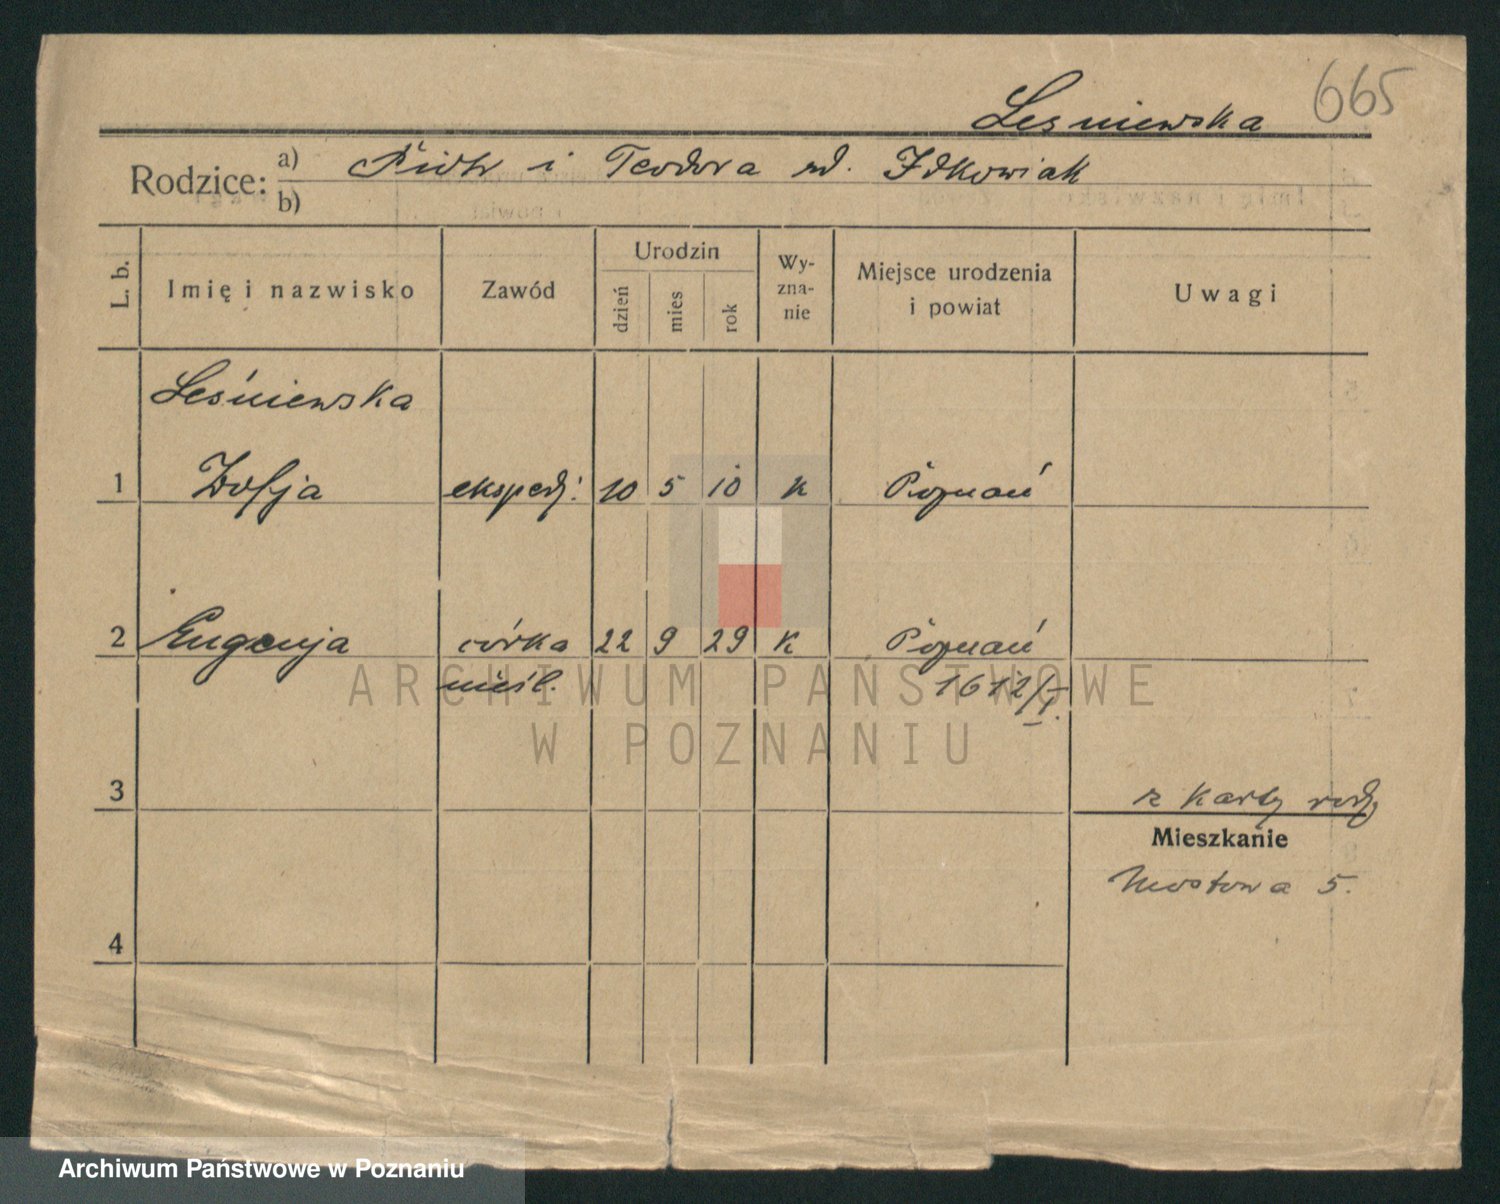 665
Leśniewska
Rodzice: a) Piotr i Teodora zd. Idkowiak
b)
L. b. Imię i nazwisko Zawód Urodzin dzień mies rok Wy-zna-nie Miejsce urodzenia i powiat Uwagi
Leśniewska
1 Zofja eksped: 10 5 10 k Poznań
2 Eugenja córka 22 9 29 k Poznań
nieśl. 1612/I.
3
z karty rodz
Mieszkanie
Mostowa 5.
4
ARCHIWUM PAŃSTWOWE
W POZNANIU
Archiwum Państwowe w Poznaniu